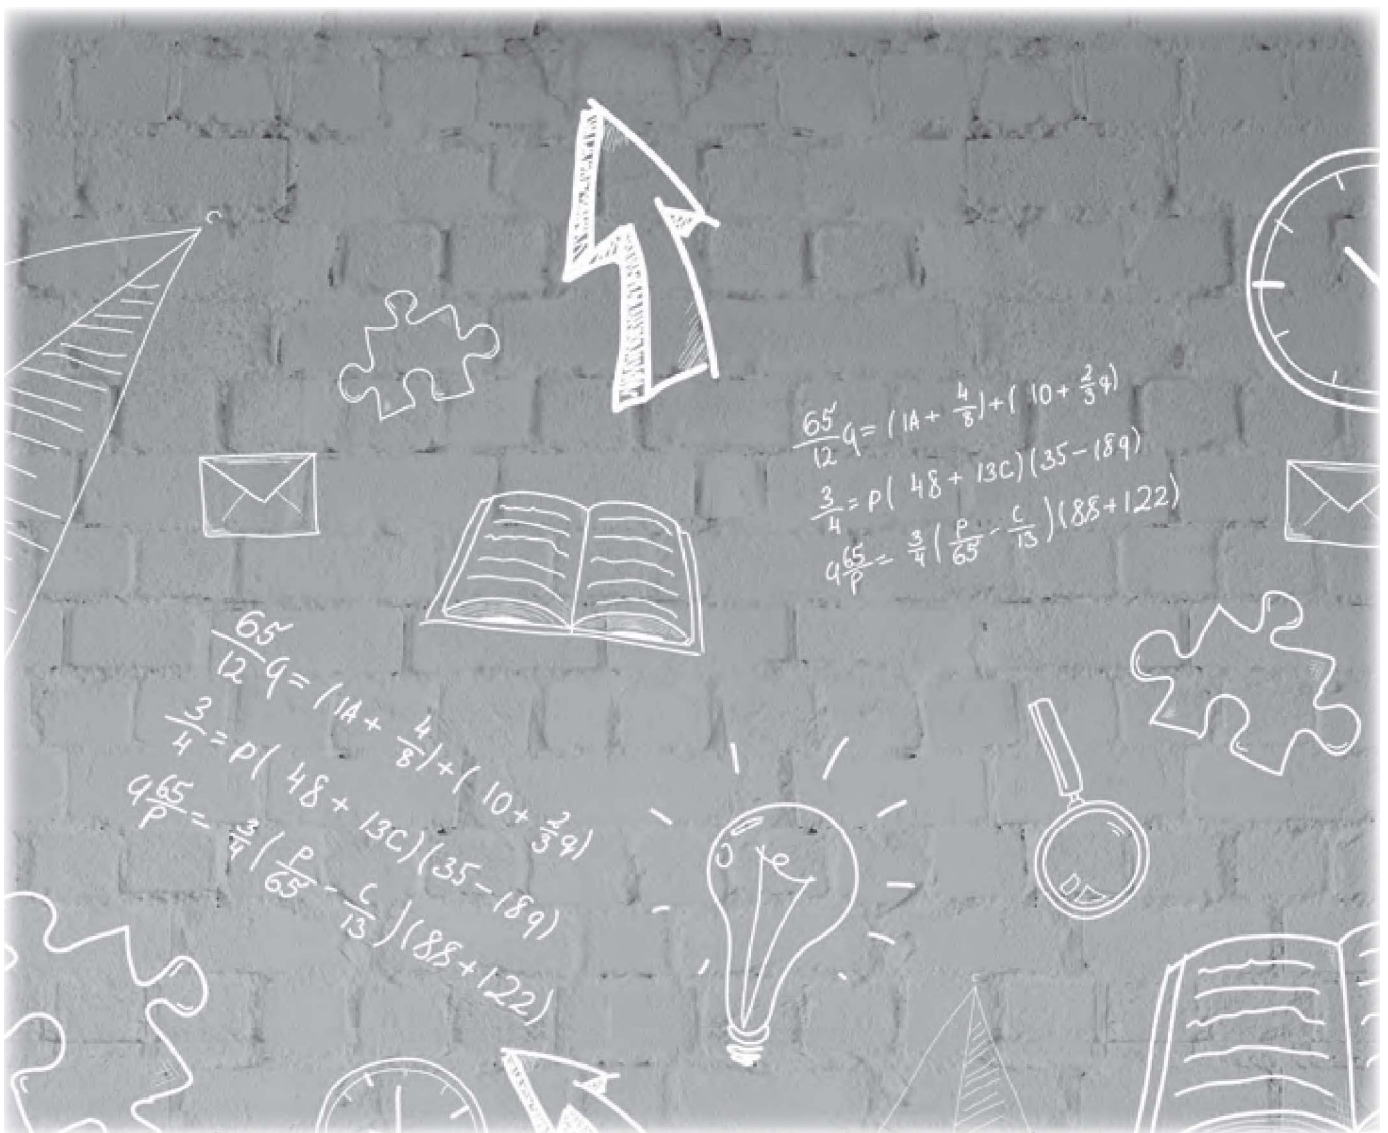 C
65/12 q = (1A + 4/8) + ( 10 + 2/3 q)
3/4 = p( 48 + 13C)(35 - 18q)
q 65/p = 3/4 ( p/65 - c/13 )(88+122)
65/12 q = (1A + 4/8) + ( 10 + 2/3 q)
3/4 = p( 48 + 13C)(35 - 18q)
q 65/p = 3/4 ( p/65 - c/13 )(88+122)